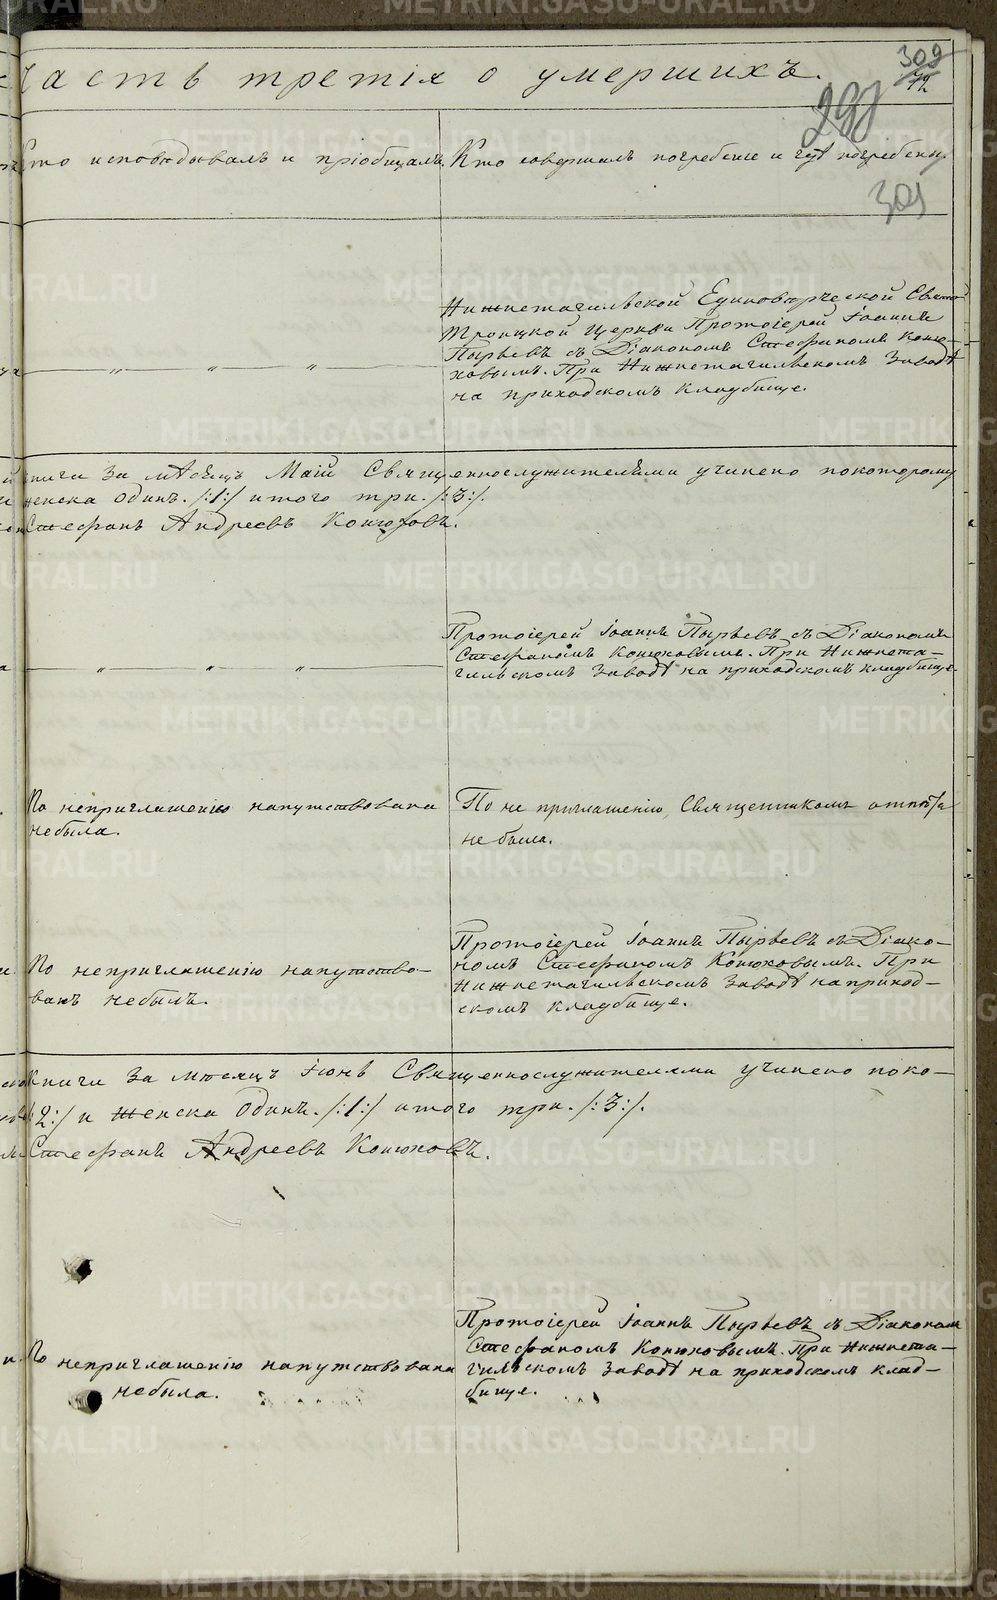 Часть третія о умершихъ.
309
72
299
301
Кто исповѣдывалъ и пріобщалъ.
Кто совершалъ погребеніе и гдѣ погребены.
Нижнетагильской Единовѣрческой Свято
Троицкой Церкви Протоіерей Іоаннъ
Пырьевъ съ Діакономъ Стефаномъ Коню-
ховымъ. При Нижнетагильскомъ Заводѣ
на приходскомъ кладбище.
„ „ „
книги за мѣсяцъ Маій Священнослужителями учинено покоторому
женска одинъ. /:1:/ итого три. /:3:/.
Стефанъ Андреевъ Конюховъ.
Протоіерей Іоаннъ Пырьевъ съ Діакономъ
Стефаномъ Конюховымъ. При Нижнета-
гильскомъ Заводѣ на приходскомъ кладбище.
„ „ „
По неприглашенію напутствована
небыла.
По не приглашенію, Священникомъ отпѣта
не была.
Протоіерей Іоаннъ Пырьевъ съ Діако-
номъ Стефаномъ Конюховымъ. При
Нижнетагильскомъ Заводѣ на приход-
скомъ кладбище.
По неприглашенію напутство-
ванъ небылъ.
книги За мѣсяцъ Іюнь Священнослужителями учинено поко-
2:/ и женска одинъ. /:1:/ итого три. /:3:/.
Стефанъ Андреевъ Конюховъ.
Протоіерей Іоаннъ Пырьевъ съ Діакономъ
Стефаномъ Конюховымъ. При Нижнета-
гильскомъ Заводѣ на приходскомъ клад-
бище.
По неприглашенію напутствована
небыла.
METRIKI.GASO-URAL.RU